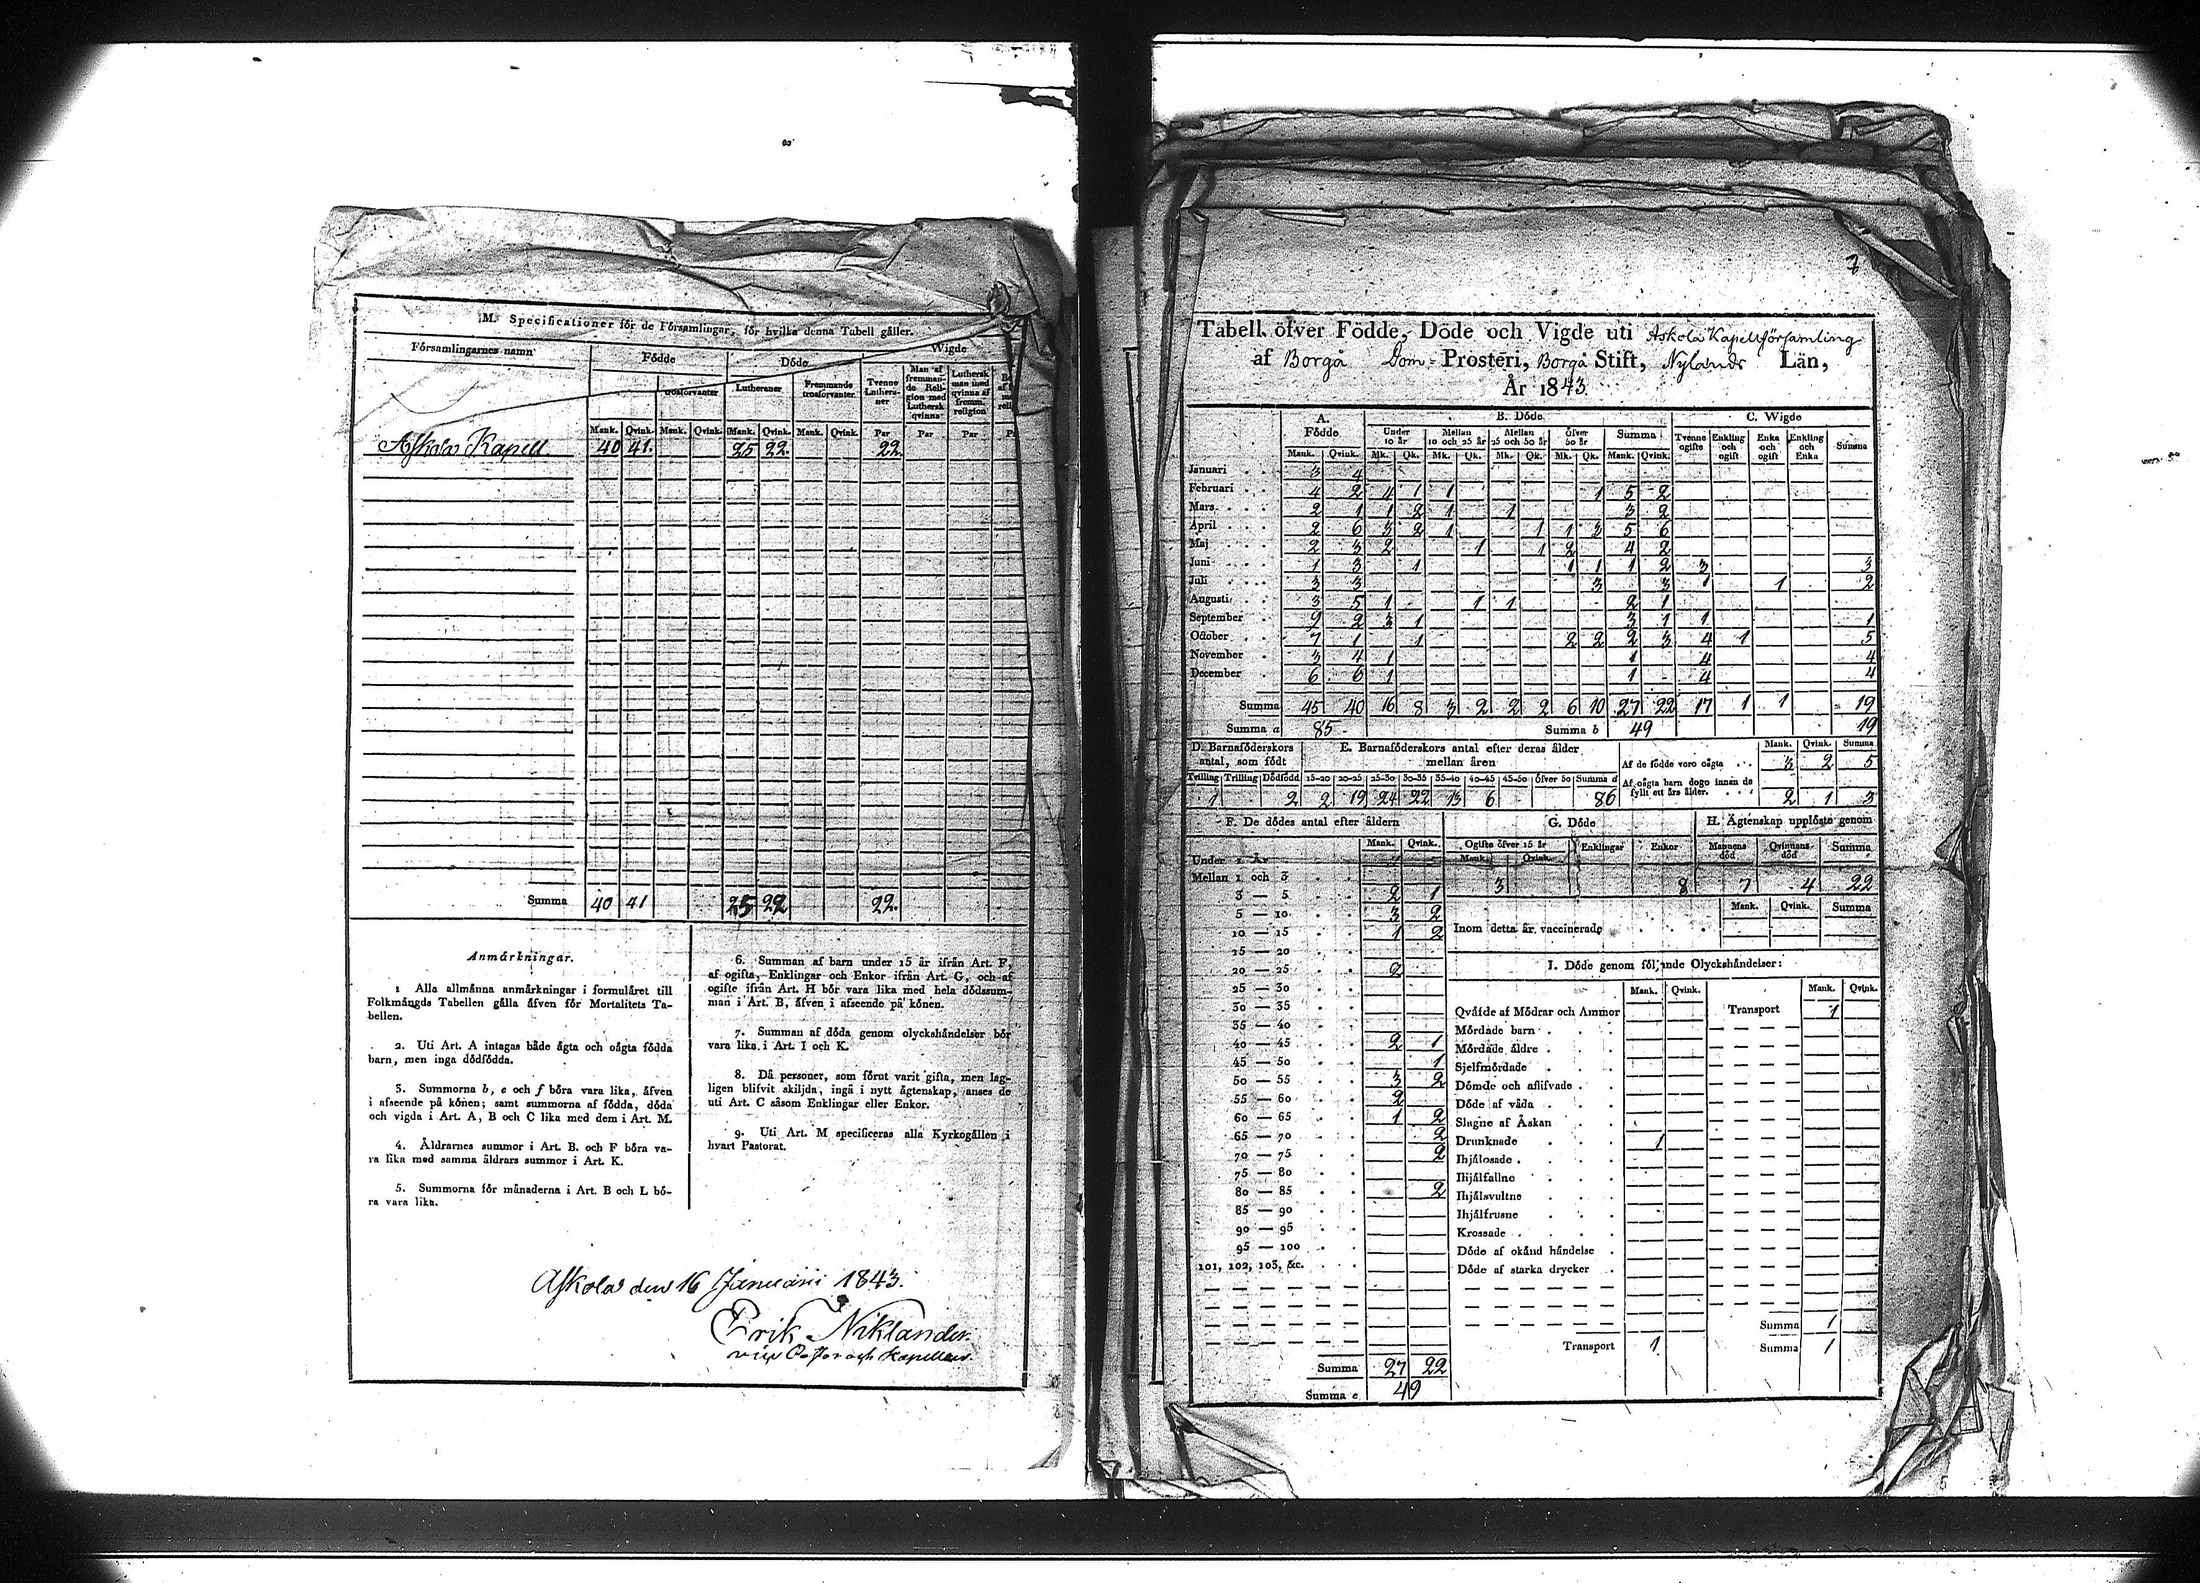 M. Specificationer för de Församlingar, för hvilka denna Tabell gäller.
Församlingarnes namn Födde Döde Wigde
Lutheraner Fremmande trosförvanter Tvenne Lutheraner Man af fremmande Religion med Luthersk qvinna Luthersk man med qvinna af fremm. religion
trosförvanter
Mank. Qvink. Mank. Qvink. Mank. Qvink. Mank. Qvink. Par Par Par
Askola Kapell 40 41. 25 22. 22.
Summa 40 41 25 22 22.
Anmärkningar.
1 Alla allmänna anmärkningar i formuläret till
Folkmängds Tabellen gälla äfven för Mortalitets Ta-
bellen.
2. Uti Art. A intagas både ägta och oägta födda
barn, men inga dödfödda.
3. Summorna b, e och f böra vara lika, äfven
i afseende på könen; samt summorna af födda, döda
och vigda i Art. A, B och C lika med dem i Art. M.
4. Åldrarnes summor i Art. B. och F böra va-
ra lika med samma åldrars summor i Art. K.
5. Summorna för månaderna i Art. B och L bö-
ra vara lika.
6. Summan af barn under 15 år ifrån Art. F,
af ogifta, Enklingar och Enkor ifrån Art. G, och af
ogifte ifrån Art. H bör vara lika med hela dödssum-
man i Art. B, äfven i afseende på könen.
7. Summan af döda genom olyckshändelser bör
vara lika i Art. I och K.
8. Då personer, som förut varit gifta, men lag-
ligen blifvit skiljda, ingå i nytt ägtenskap, anses de
uti Art. C såsom Enklingar eller Enkor.
9. Uti Art. M specificeras alla Kyrkogällen i
hvart Pastorat.
Askola den 16 Januarii 1843.
Erik Niklander.
vice Pastor och Kapellan.
7
Tabell öfver Födde, Döde och Vigde uti Askola Kapellförsamling
af Borgå Dom-Prosteri, Borgå Stift, Nylands Län,
År 1843.
A. Födde B. Döde C. Wigde
Under 10 år Mellan 10 och 25 år Mellan 25 och 50 år Öfver 50 år Summa Tvenne ogifte Enkling och ogift Enka och ogift Enkling och Enka Summa
Mank. Qvink. Mk. Qk. Mk. Qk. Mk. Qk. Mk. Qk. Mank. Qvink.
Januari 3 4
Februari 4 2 4 1 1 1 5 2
Mars 2 1 1 2 1 1 3 2
April 2 6 3 2 1 1 1 3 5 6
Maj 2 3 2 1 1 2 4 2
Juni 1 3 1 1 1 1 2 3 3
Juli 3 3 3 3 1 1 2
Augusti 3 5 1 1 1 2 1
September 9 2 3 1 3 1 1 1
October 7 1 1 2 2 2 3 4 1 5
November 3 4 1 1 4 4
December 6 6 1 1 4 4
Summa 45 40 16 8 3 2 2 2 6 10 27 22 17 1 1 19
Summa a 85 Summa b 49 19
D. Barnaföderskors antal, som födt E. Barnaföderskors antal efter deras ålder mellan åren Mank. Qvink. Summa
Af de födde voro oägta 3 2 5
Tvilling Trilling Dödfödd 15-20 20-25 25-30 30-35 35-40 40-45 45-50 öfver 50 Summa d
1 2 2 19 24 22 13 6 86
Af oägta barn dogo innan de fyllt ett års ålder. 2 1 3
F. De dödes antal efter åldern G. Döde H. Ägtenskap upplöste genom
Mank. Qvink. Ogifte öfver 15 år Enklingar Enkor Mannens död Qvinnans död Summa
Mank. Qvink.
Under 1 År
Mellan 1 och 3 3 8 7 4 22
3 — 5 2 1
5 — 10 3 2
10 — 15 1 2
15 — 20
20 — 25 2
25 — 30
30 — 35
35 — 40
40 — 45 2 1
45 — 50 1
50 — 55 3 2
55 — 60 2
60 — 65 1 2
65 — 70 2
70 — 75 2
75 — 80
80 — 85 2
85 — 90
90 — 95
95 — 100
101, 102, 103, &c.
Summa 27 22
Summa e 49
Mank. Qvink. Summa
Inom detta år vaccinerade
I. Döde genom följande Olyckshändelser:
Mank. Qvink. Mank. Qvink.
Qväfde af Mödrar och Ammor Transport 1
Mördade barn
Mördade äldre
Sjelfmördade
Dömde och aflifvade
Döde af våda
Slagne af Åskan
Drunknade 1
Ihjälosade
Ihjälfallne
Ihjälsvultne
Ihjälfrusne
Krossade
Döde af okänd händelse
Döde af starka drycker
Summa 1
Transport 1 Summa 1